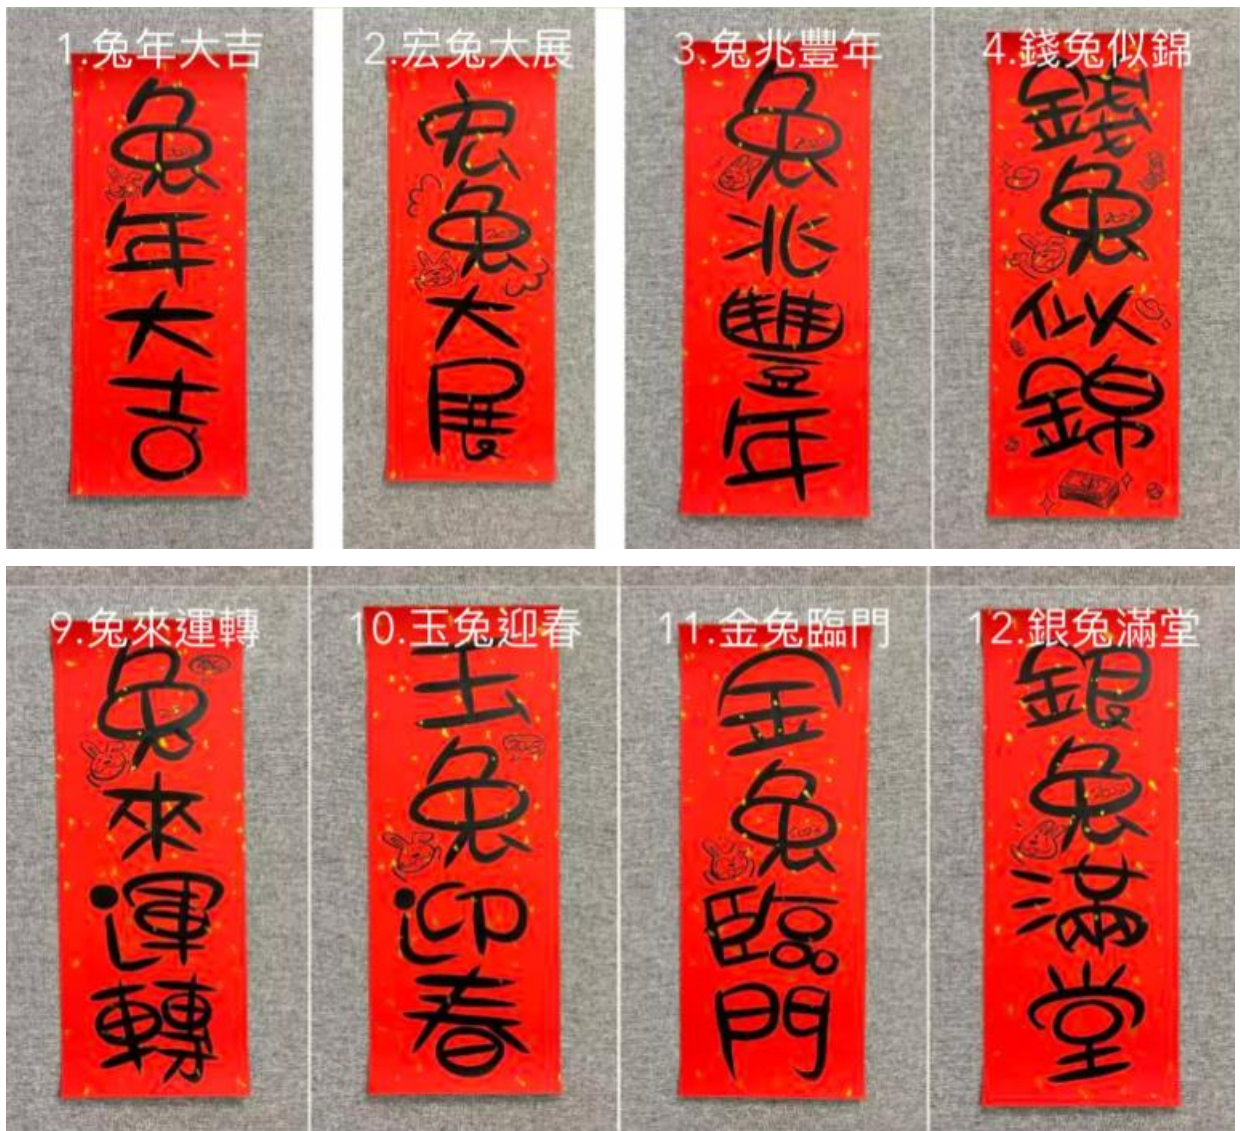 1.兔年大吉
兔年大吉
2.宏兔大展
宏兔大展
3.兔兆豐年
兔兆豐年
4.錢兔似錦
錢兔似錦
9.兔來運轉
兔來運轉
10.玉兔迎春
玉兔迎春
11.金兔臨門
金兔臨門
12.銀兔滿堂
銀兔滿堂